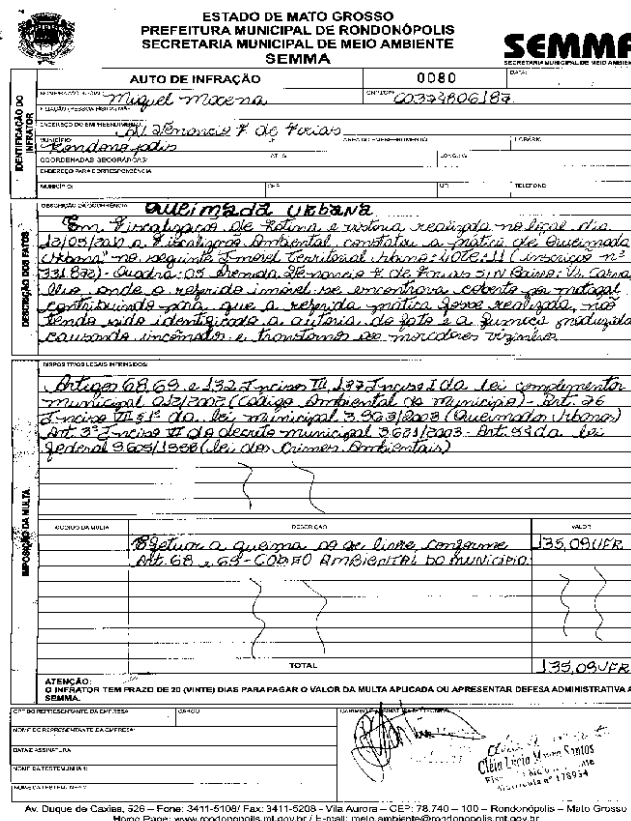 ESTADO DE MATO GROSSO
PREFEITURA MUNICIPAL DE RONDONÓPOLIS
SECRETARIA MUNICIPAL DE MEIO AMBIENTE
SEMMA
SEMMA
SECRETARIA MUNICIPAL DE MEIO AMBIENTE
AUTO DE INFRAÇÃO
0080
DATA:
IDENTIFICAÇÃO DO INFRATOR
Miguel Mocena
00374806187
ENDEREÇO DO EMPREENDIMENTO
Av Venancio F de Farias
MUNICÍPIO
Rondonopolis
COORDENADAS GEOGRÁFICAS:
ENDEREÇO PARA CORRESPONDÊNCIA
MUNICÍPIO:
TELEFONE
DESCRIÇÃO DOS FATOS
DESCRIÇÃO DA OCORRÊNCIA
Queimada Urbana
Em Fiscalização de Rotina e vistoria realizada no local dia
12/05/2010 a Fiscalização Ambiental constatou a prática de Queimada
Urbana" no seguinte Imóvel Territorial Urbano: LOTE: 11 (inscrição nº
331872) - Quadra: 05 Avenida Venancio F de Farias S/N Bairro: VL Carva
lho onde o referido imóvel se encontrava coberto por matagal
contribuindo para que a referida prática fosse realizada, não
tendo sido identificado a autoria do fato e a fumaça produzida
causando incomodos e transtornos aos moradores vizinhos
DISPOSITIVOS LEGAIS INFRINGIDOS:
Artigos 68, 69 e 132 Inciso III, 137 Inciso I da lei complementar
municipal 012/2002 (Código Ambiental do Município) - Art. 26
Inciso VII § 1º da lei municipal 3.963/2003 (Queimadas Urbanas)
Art. 3º Inciso VI do decreto municipal 3681/2003 - Art. 54 da lei
federal 9605/1998 (lei dos Crimes Ambientais)
IMPOSIÇÃO DA MULTA
CÓDIGO DA MULTA
DESCRIÇÃO
VALOR
Efetuar a queima ao ar livre conforme
135,09 UFR
Art. 68 e 69 - CODIGO AMBIENTAL DO MUNICIPIO
TOTAL
135,09 UFR
ATENÇÃO:
O INFRATOR TEM PRAZO DE 20 (VINTE) DIAS PARA PAGAR O VALOR DA MULTA APLICADA OU APRESENTAR DEFESA ADMINISTRATIVA A
SEMMA.
CPF DO REPRESENTANTE DA EMPRESA
CARGO
NOME DO REPRESENTANTE DA EMPRESA
DATA E ASSINATURA
NOME DA TESTEMUNHA 1:
NOME DA TESTEMUNHA 2:
Santos
Matrícula nº 178954
Av. Duque de Caxias, 526 – Fone: 3411-5108/ Fax: 3411-5208 - Vila Aurora – CEP: 78.740 – 100 – Rondonópolis – Mato Grosso
Home Page: www.rondonopolis.mt.gov.br / E-mail: meio.ambiente@rondonopolis.mt.gov.br